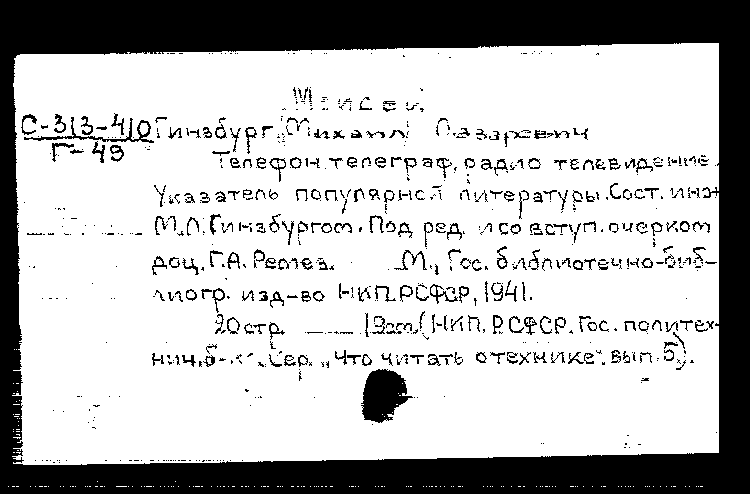 Моисей
С-313-410 Гинзбург, (Михаил) Лазаревич
Г-49
Телефон, телеграф, радио телевидение.
Указатель популярной литературы. Сост. инж
М.Л. Гинзбургом. Под ред. и со вступ. очерком
доц. Г.А. Ремез. М., Гос. библиотечно-биб-
лиогр. изд-во НКП. РСФСР, 1941.
20 стр. 19 см (НКП. РСФСР. Гос. политех-
нич. б-ка. Сер. „Что читать о технике". вып. 5.).